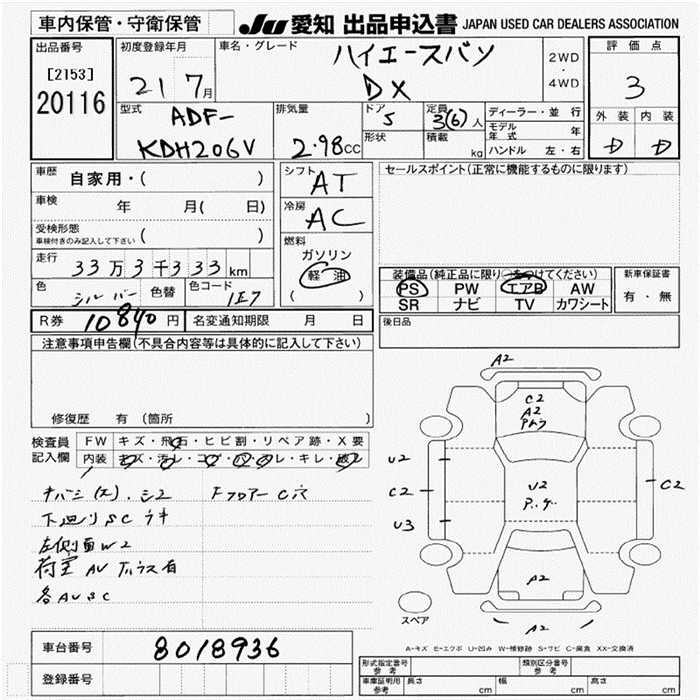 車内保管・守衛保管
JU 愛知 出品申込書 JAPAN USED CAR DEALERS ASSOCIATION
出品番号
[2153]
20116
初度登録年月
21 7月
車名・グレード
ハイエースバン
DX
2WD
・
4WD
評価点
3
外装 内装
D D
型式
ADF-
KDH206V
排気量
2.98CC
ドア
5
定員
3(6)人
形状
積載
kg
ディーラー・並行
モデル年式 年
ハンドル 左・右
車歴
自家用・( )
車検
年 月( 日)
受検形態
車検付きのみ記入して下さい ( )
走行
33万3千333km
色
シルバー
色替
色コード
1E7
シフト
AT
冷房
AC
燃料
ガソリン
軽油
( )
セールスポイント(正常に機能するものに限ります)
装備品(純正品に限り○をつけてください)
PS PW エアB AW
SR ナビ TV カワシート
新車保証書
有・無
後日品
R券 10840円 名変通知期限 月 日
注意事項申告欄(不具合内容等は具体的に記入して下さい)
修復歴 有 (箇所 )
検査員
記入欄
FW キズ・飛石・ヒビ割・リペア跡・X要
内装 キズ・汚レ・コゲ・穴・スレ・キレ・破レ
下廻りSC サキ
左側面W2
各AUSC
Fフロアー C穴
A2
C2
A2
U2
C2
U3
U2
C2
A2
A2
スペア
A-キズ E-エクボ U-凹み W-補修跡 S-サビ C-腐食 XX-交換済
車台番号
8018936
登録番号
形式指定番号
参考
類別区分番号
参考
車庫証明用
参考
長さ cm 幅 cm 高さ cm